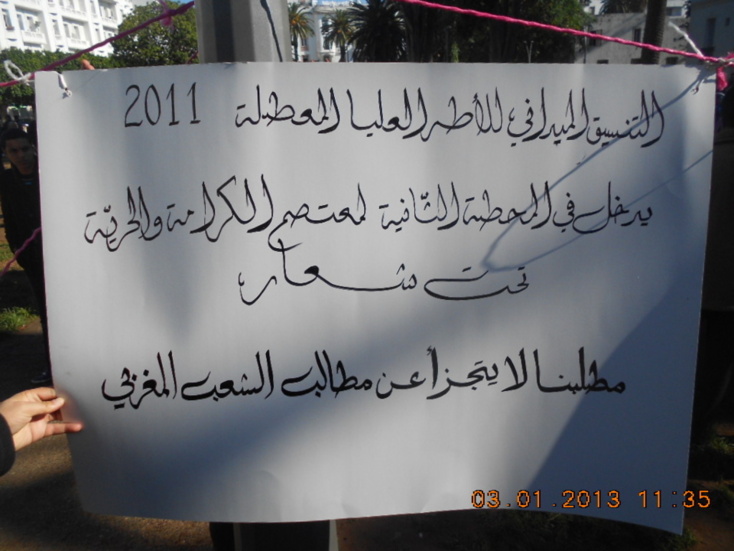 التنسيق الميداني للأطر العليا المعطلة 2011
يدخل في المحطة الثانية لمعتصم الكرامة والحريّة
تحت شعار
مطلبنا لا يتجزأ عن مطالب الشعب المغربي
03.01.2013 11:35